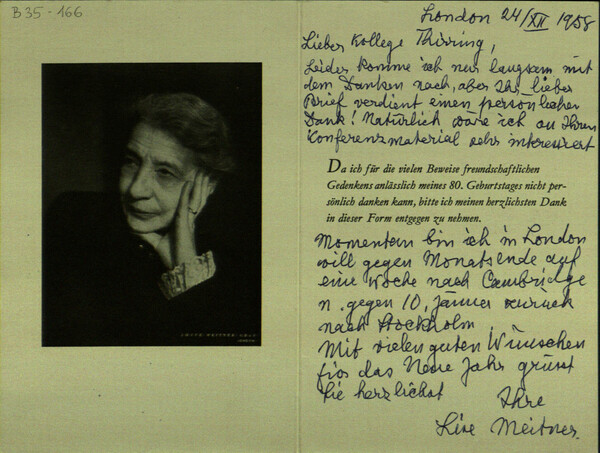 B 35 - 166
London 24/XII 1958
Lieber Kollege Thirring,
Leider komme ich nur langsam mit
dem Danken nach, aber Ihr lieber
Brief verdient einen persönlichen
Dank! Natürlich wäre ich an Ihrem
Konferenzmaterial sehr interessiert
Da ich für die vielen Beweise freundschaftlichen
Gedenkens anlässlich meines 80. Geburtstages nicht per-
sönlich danken kann, bitte ich meinen herzlichsten Dank
in dieser Form entgegen zu nehmen.
Momentan bin ich in London
will gegen Monatsende auf
eine Woche nach Cambridge
u. gegen 10. Jänner zurück
nach Stockholm
Mit vielen guten Wünschen
für das Neue Jahr grüsst
Sie herzlichst
Ihre
Lise Meitner.